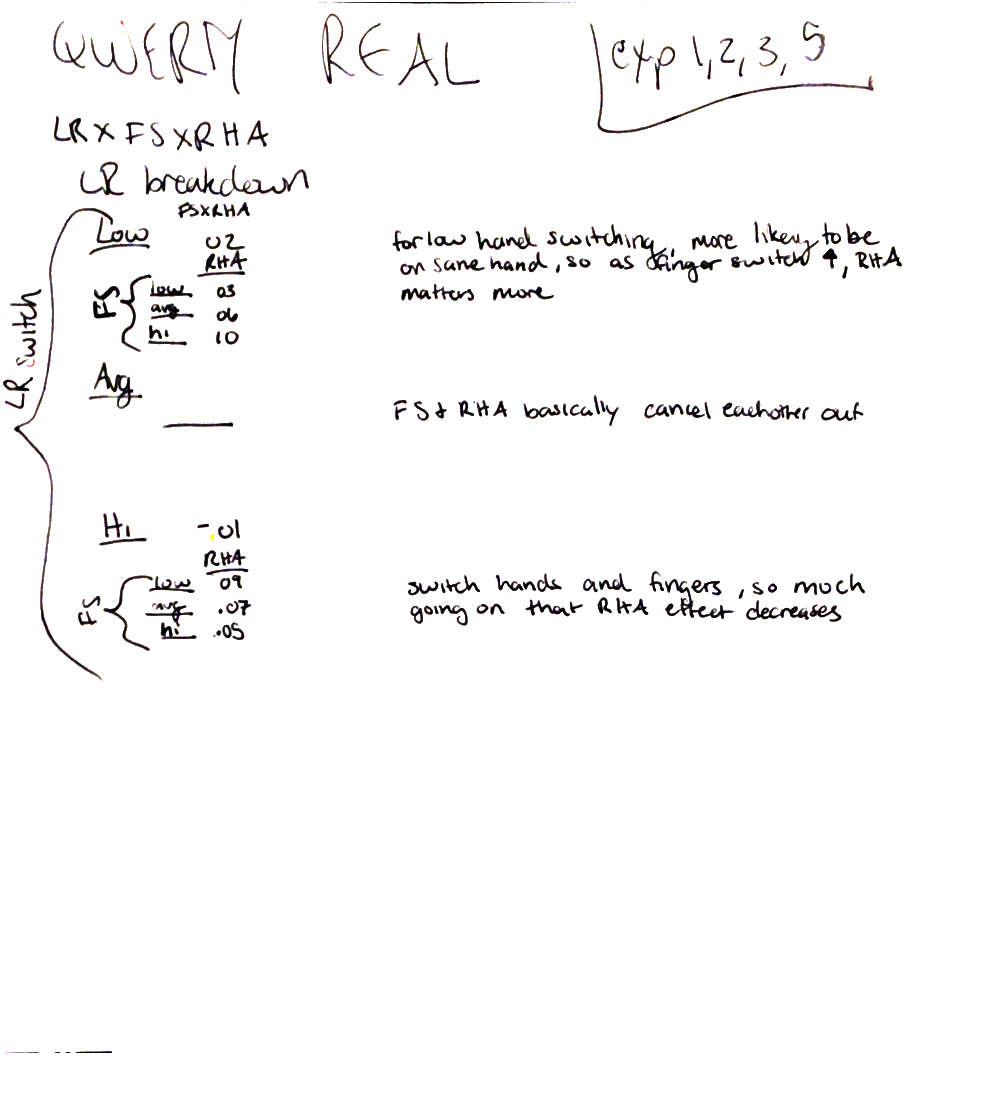 QWERTY REAL
exp 1, 2, 3, 5
LR X FS X RHA
LR breakdown
FSXRHA
Low 02
RHA
FS
low 03
avg 06
hi 10
for low hand switching, more likely to be
on same hand, so as finger switch ↑, RHA
matters more
LR switch
Avg
FS & RHA basically cancel eachother out
Hi -.01
RHA
FS
low 09
avg .07
hi .05
switch hands and fingers, so much
going on that RHA effect decreases